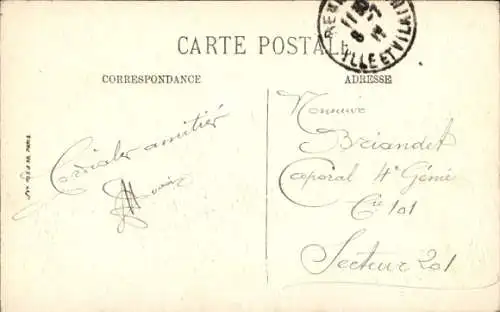 CARTE POSTALE
CORRESPONDANCE
ADRESSE
ILLE ET VIL
Cordiales amitiés
Monsieur
Briandet
Caporal 4e Génie
Cie 101
Secteur 201